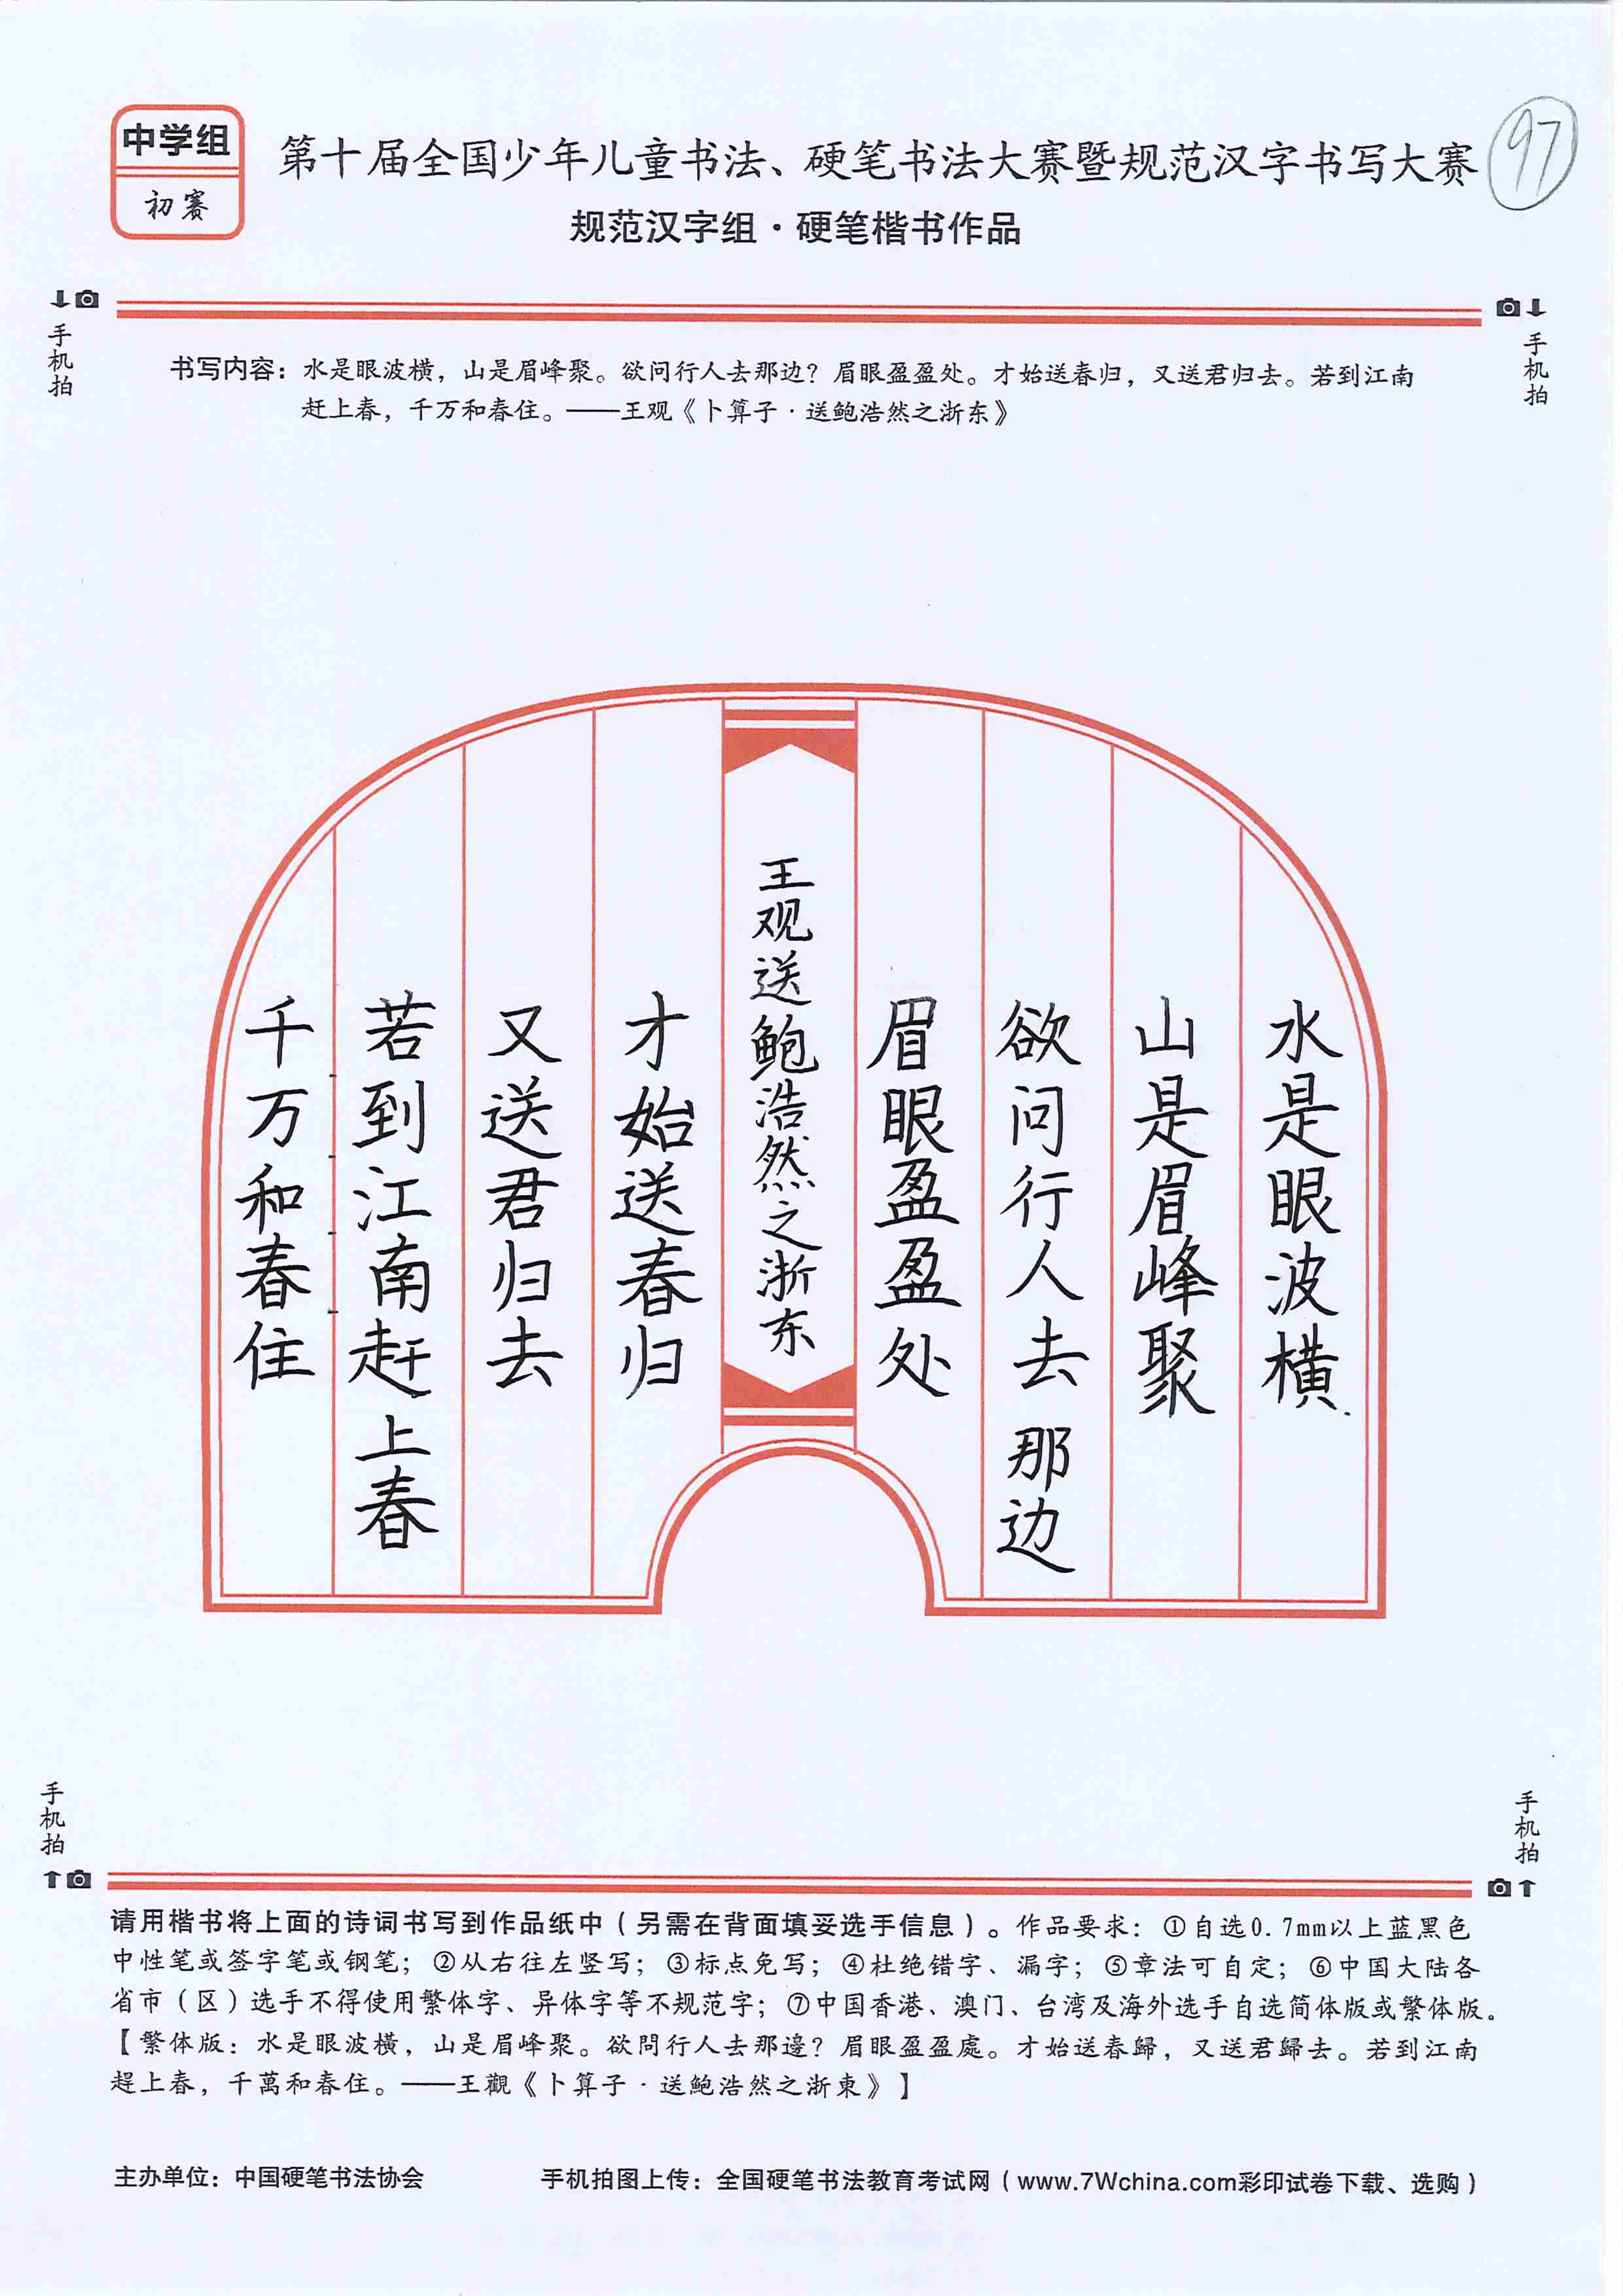 中学组
初赛
第十届全国少年儿童书法、硬笔书法大赛暨规范汉字书写大赛
97
规范汉字组·硬笔楷书作品
手机拍
手机拍
书写内容：水是眼波横，山是眉峰聚。欲问行人去那边？眉眼盈盈处。才始送春归，又送君归去。若到江南
赶上春，千万和春住。——王观《卜算子·送鲍浩然之浙东》
水是眼波横
山是眉峰聚
欲问行人去那边
眉眼盈盈处
王观送鲍浩然之浙东
才始送春归
又送君归去
若到江南赶上春
千万和春住
手机拍
手机拍
请用楷书将上面的诗词书写到作品纸中（另需在背面填妥选手信息）。作品要求：①自选0.7mm以上蓝黑色
中性笔或签字笔或钢笔；②从右往左竖写；③标点免写；④杜绝错字、漏字；⑤章法可自定；⑥中国大陆各
省市（区）选手不得使用繁体字、异体字等不规范字；⑦中国香港、澳门、台湾及海外选手自选简体版或繁体版。
【繁体版：水是眼波橫，山是眉峰聚。欲問行人去那邊？眉眼盈盈處。才始送春歸，又送君歸去。若到江南
趕上春，千萬和春住。——王觀《卜算子·送鮑浩然之浙東》】
主办单位：中国硬笔书法协会
手机拍图上传：全国硬笔书法教育考试网（www.7Wchina.com彩印试卷下载、选购）